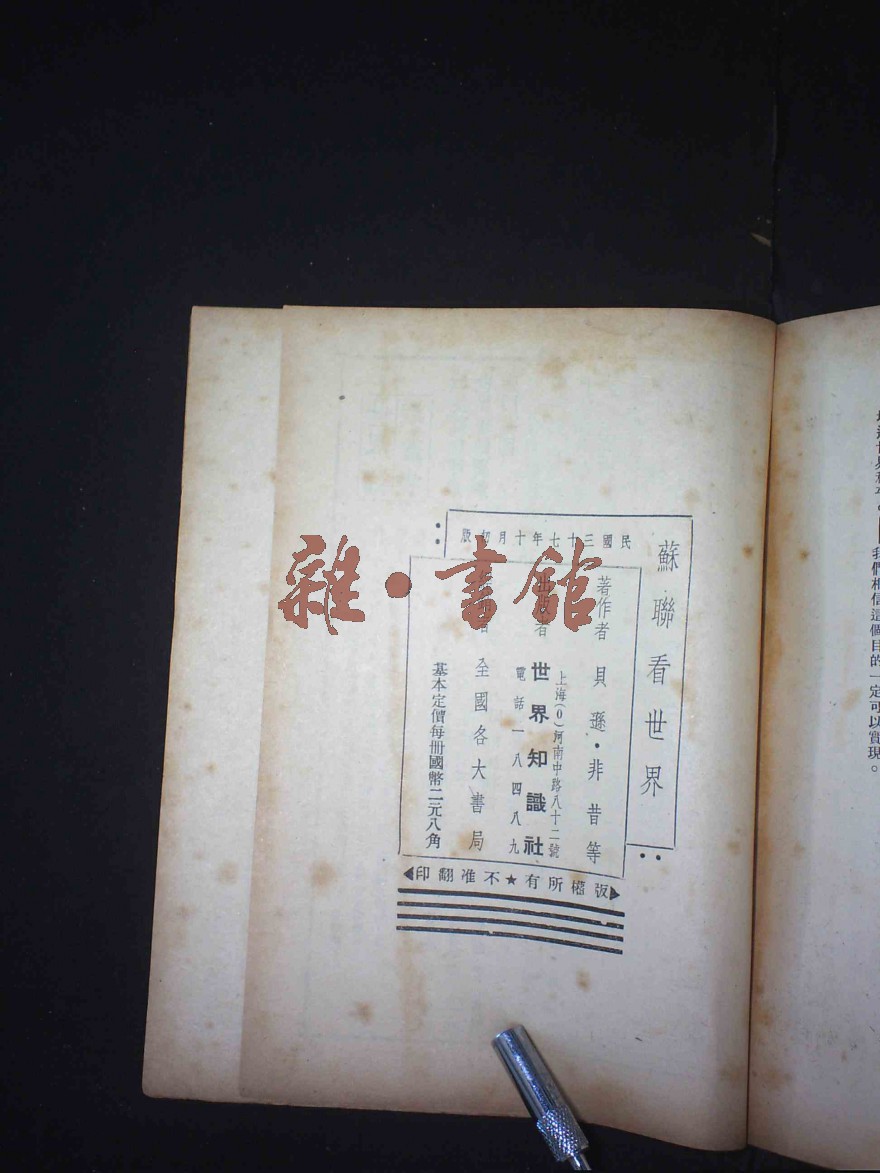 蘇聯看世界
民國三十七年十月初版
著作者 貝遜·非昔等
上海(0)河南中路八十二號
出版者 世界知識社
電話一八四八九
全國各大書局
基本定價每冊國幣二元八角
版權所有★不准翻印
雜·書館
我們相信這個目的一定可以實現。